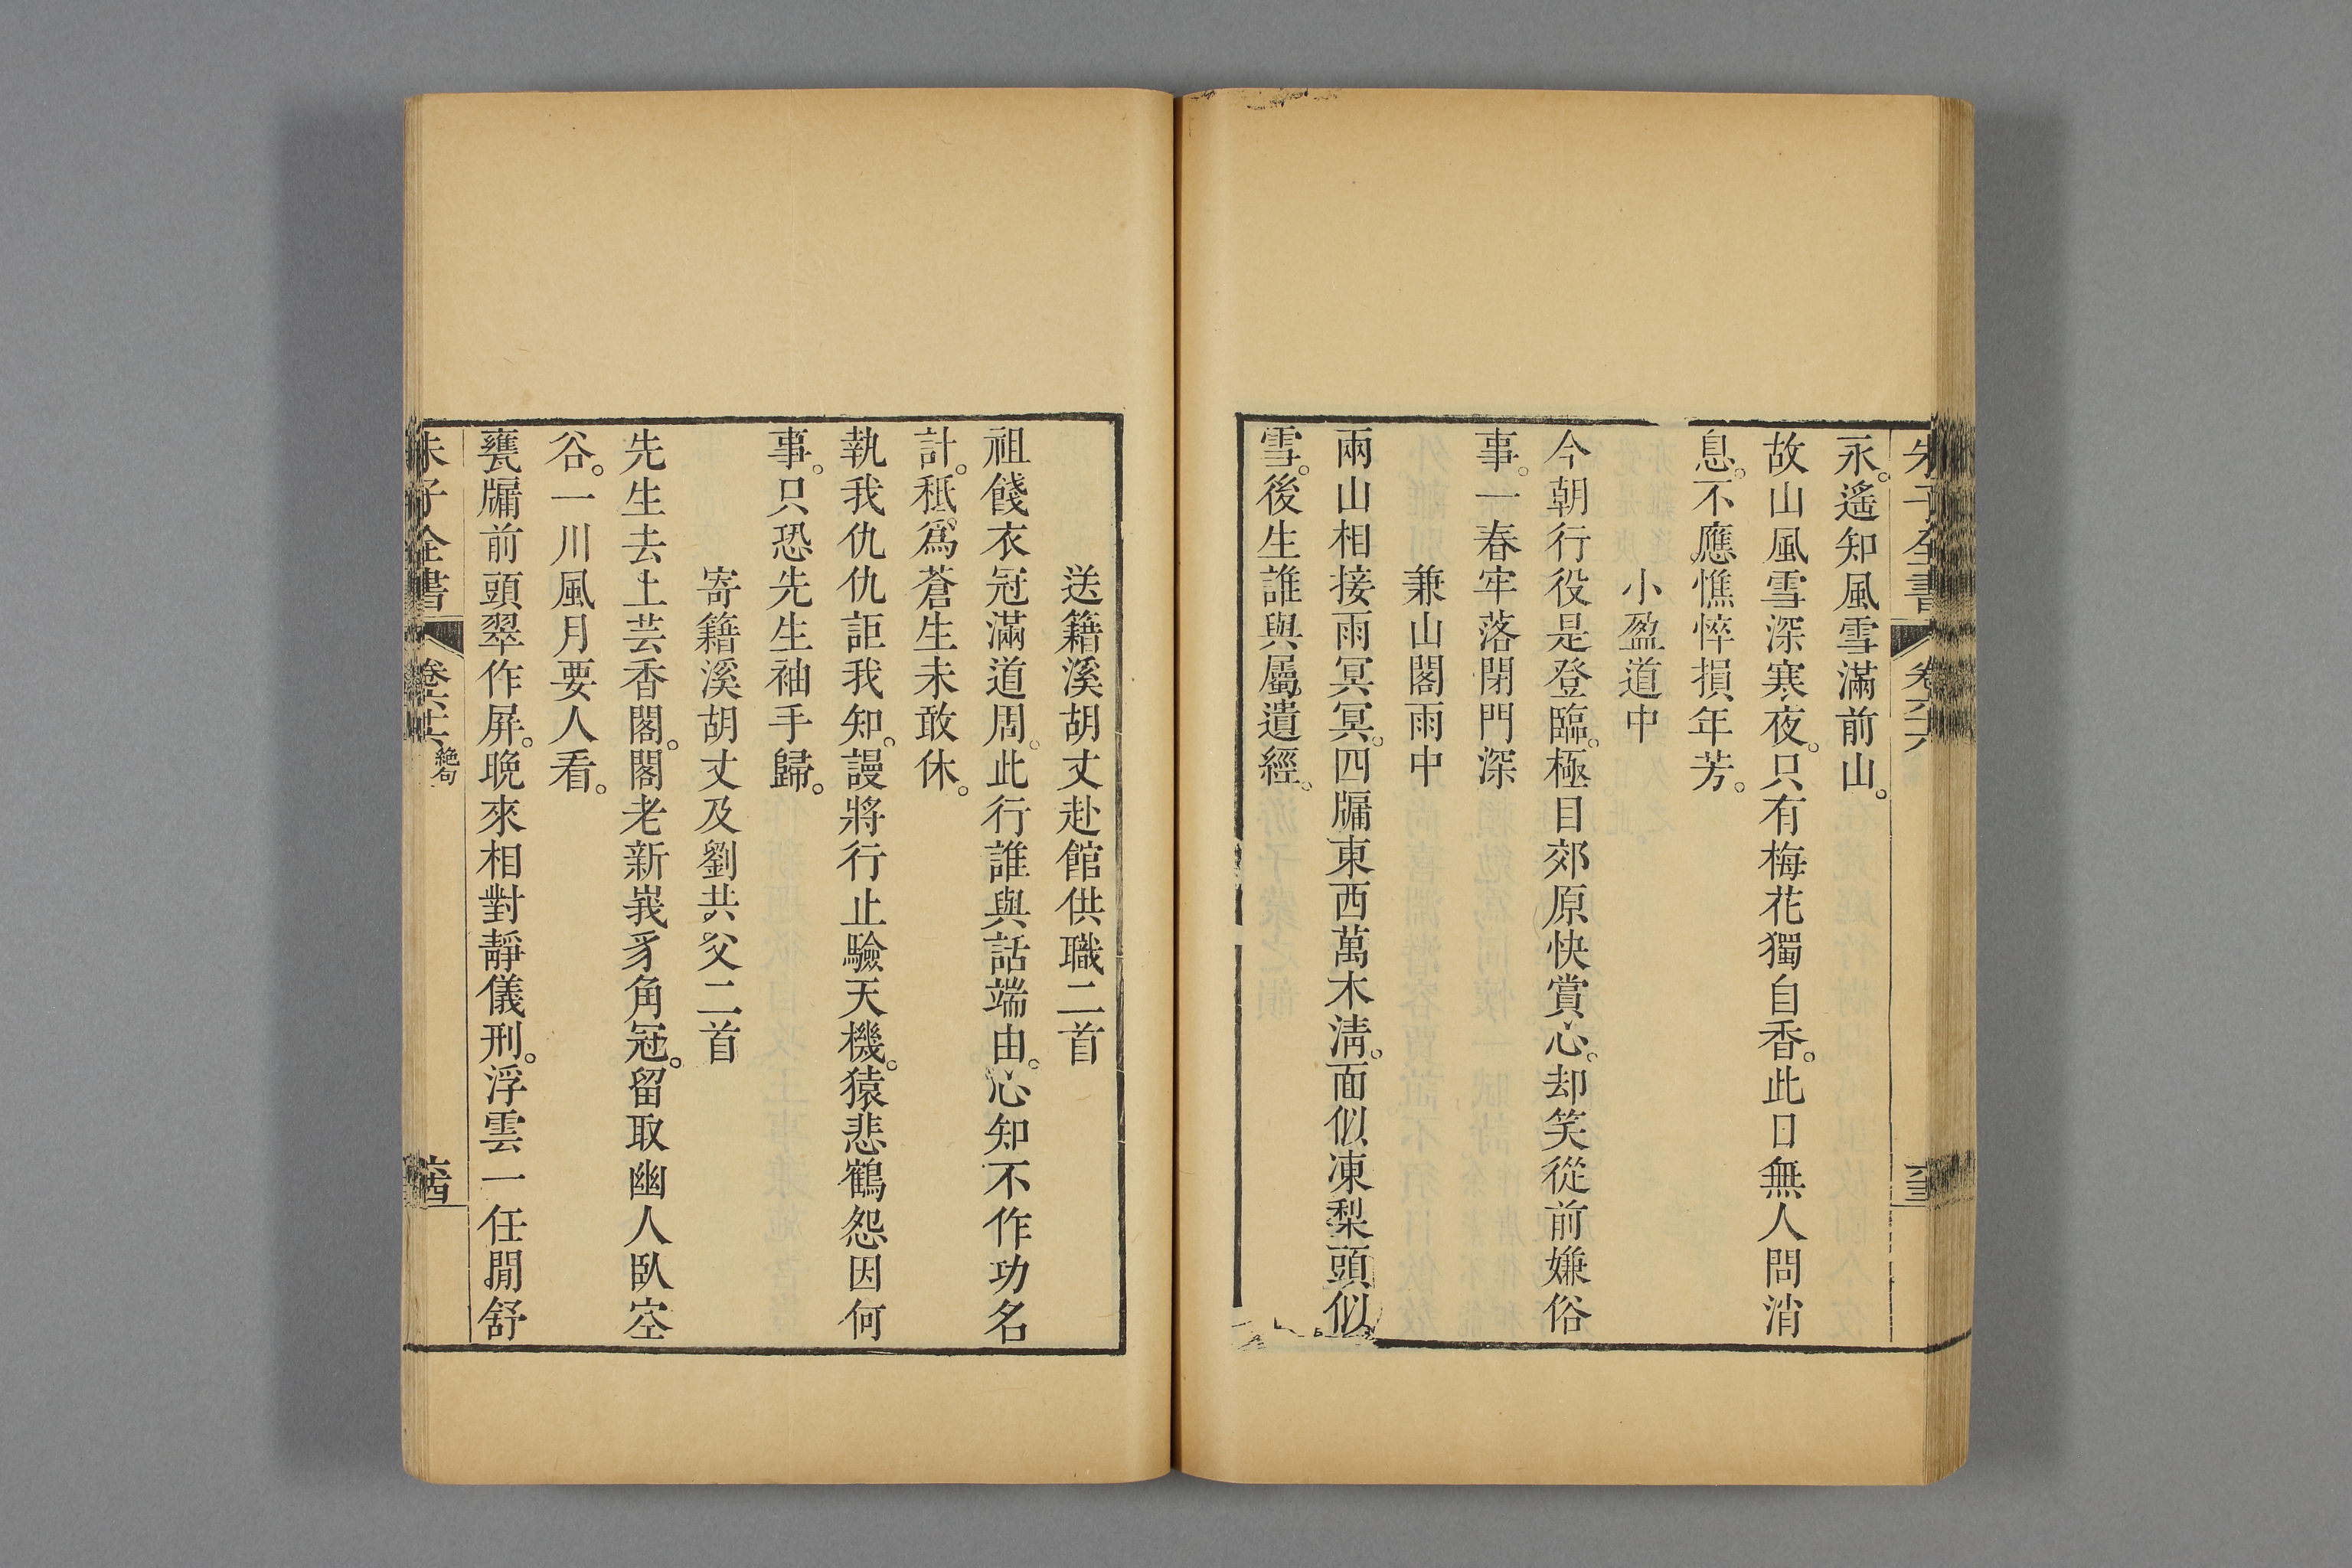 永。遙知風雪滿前山。
故山風雪深寒夜。只有梅花獨自香。此日無人問消
息。不應憔悴損年芳。
小盈道中
今朝行役是登臨。極目郊原快賞心。却笑從前嫌俗
事。一春牢落閉門深
兼山閣雨中
兩山相接雨冥冥。四牖東西萬木淸。面似凍梨頭似
雪。後生誰與屬遺經。
送籍溪胡丈赴館供職二首
祖餞衣冠滿道周。此行誰與話端由。心知不作功名
計。秪爲蒼生未敢休。
執我仇仇詎我知。謾將行止驗天機。猿悲鶴怨因何
事。只恐先生袖手歸。
寄籍溪胡丈及劉共父二首
先生去上芸香閣。閣老新峩豸角冠。留取幽人臥空
谷。一川風月要人看。
甕牖前頭翠作屏。晚來相對靜儀刑。浮雲一任閒舒
朱子全書 卷六十六 絶句